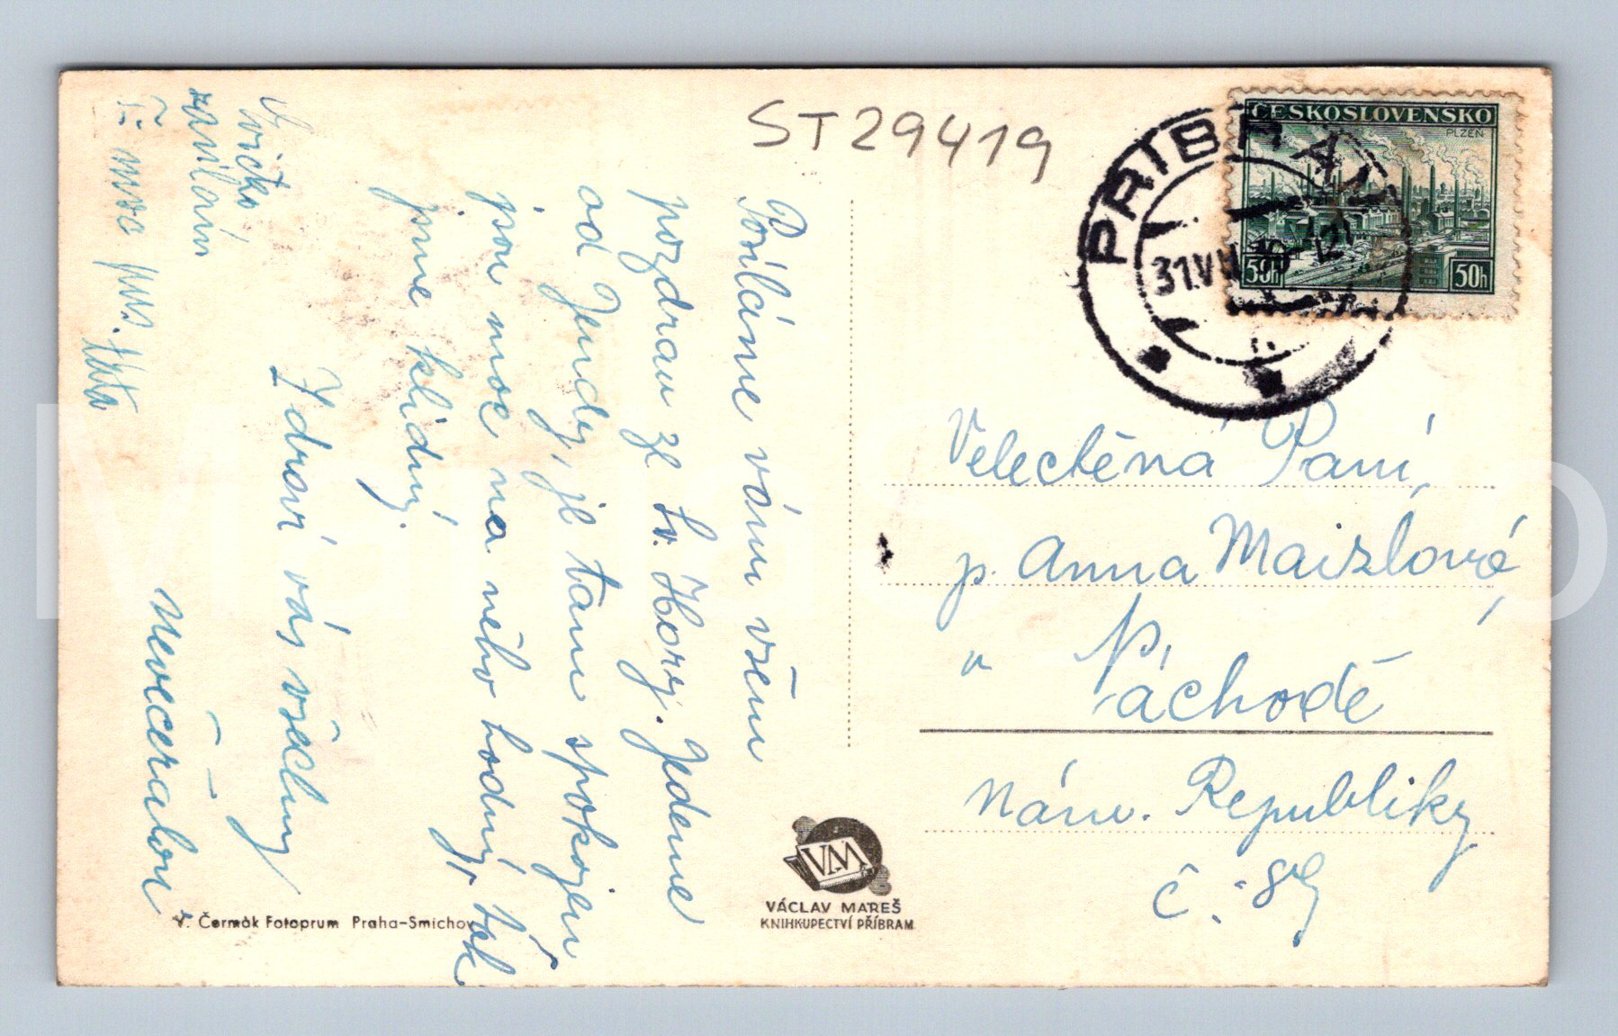 ST29419
ČESKOSLOVENSKO
PLZEŇ
50h 50h
PŘÍBRAM
31.VII
Posíláme vám všem
pozdrav ze Sv. Hory. Jedeme
od Jendy, je tam spokojen
jsou moc na něho hodný, tak
jsme klidný.
Zdraví vás všechny
Nevečeralovi
zasílám
moc pus. táta
Velectěná Paní,
p. Anna Maizlová
v Náchodě
Nám. Republiky
č.
VM
VÁCLAV MAREŠ
KNIHKUPECTVÍ PŘÍBRAM
V. Čermák Fotoprum Praha-Smíchov